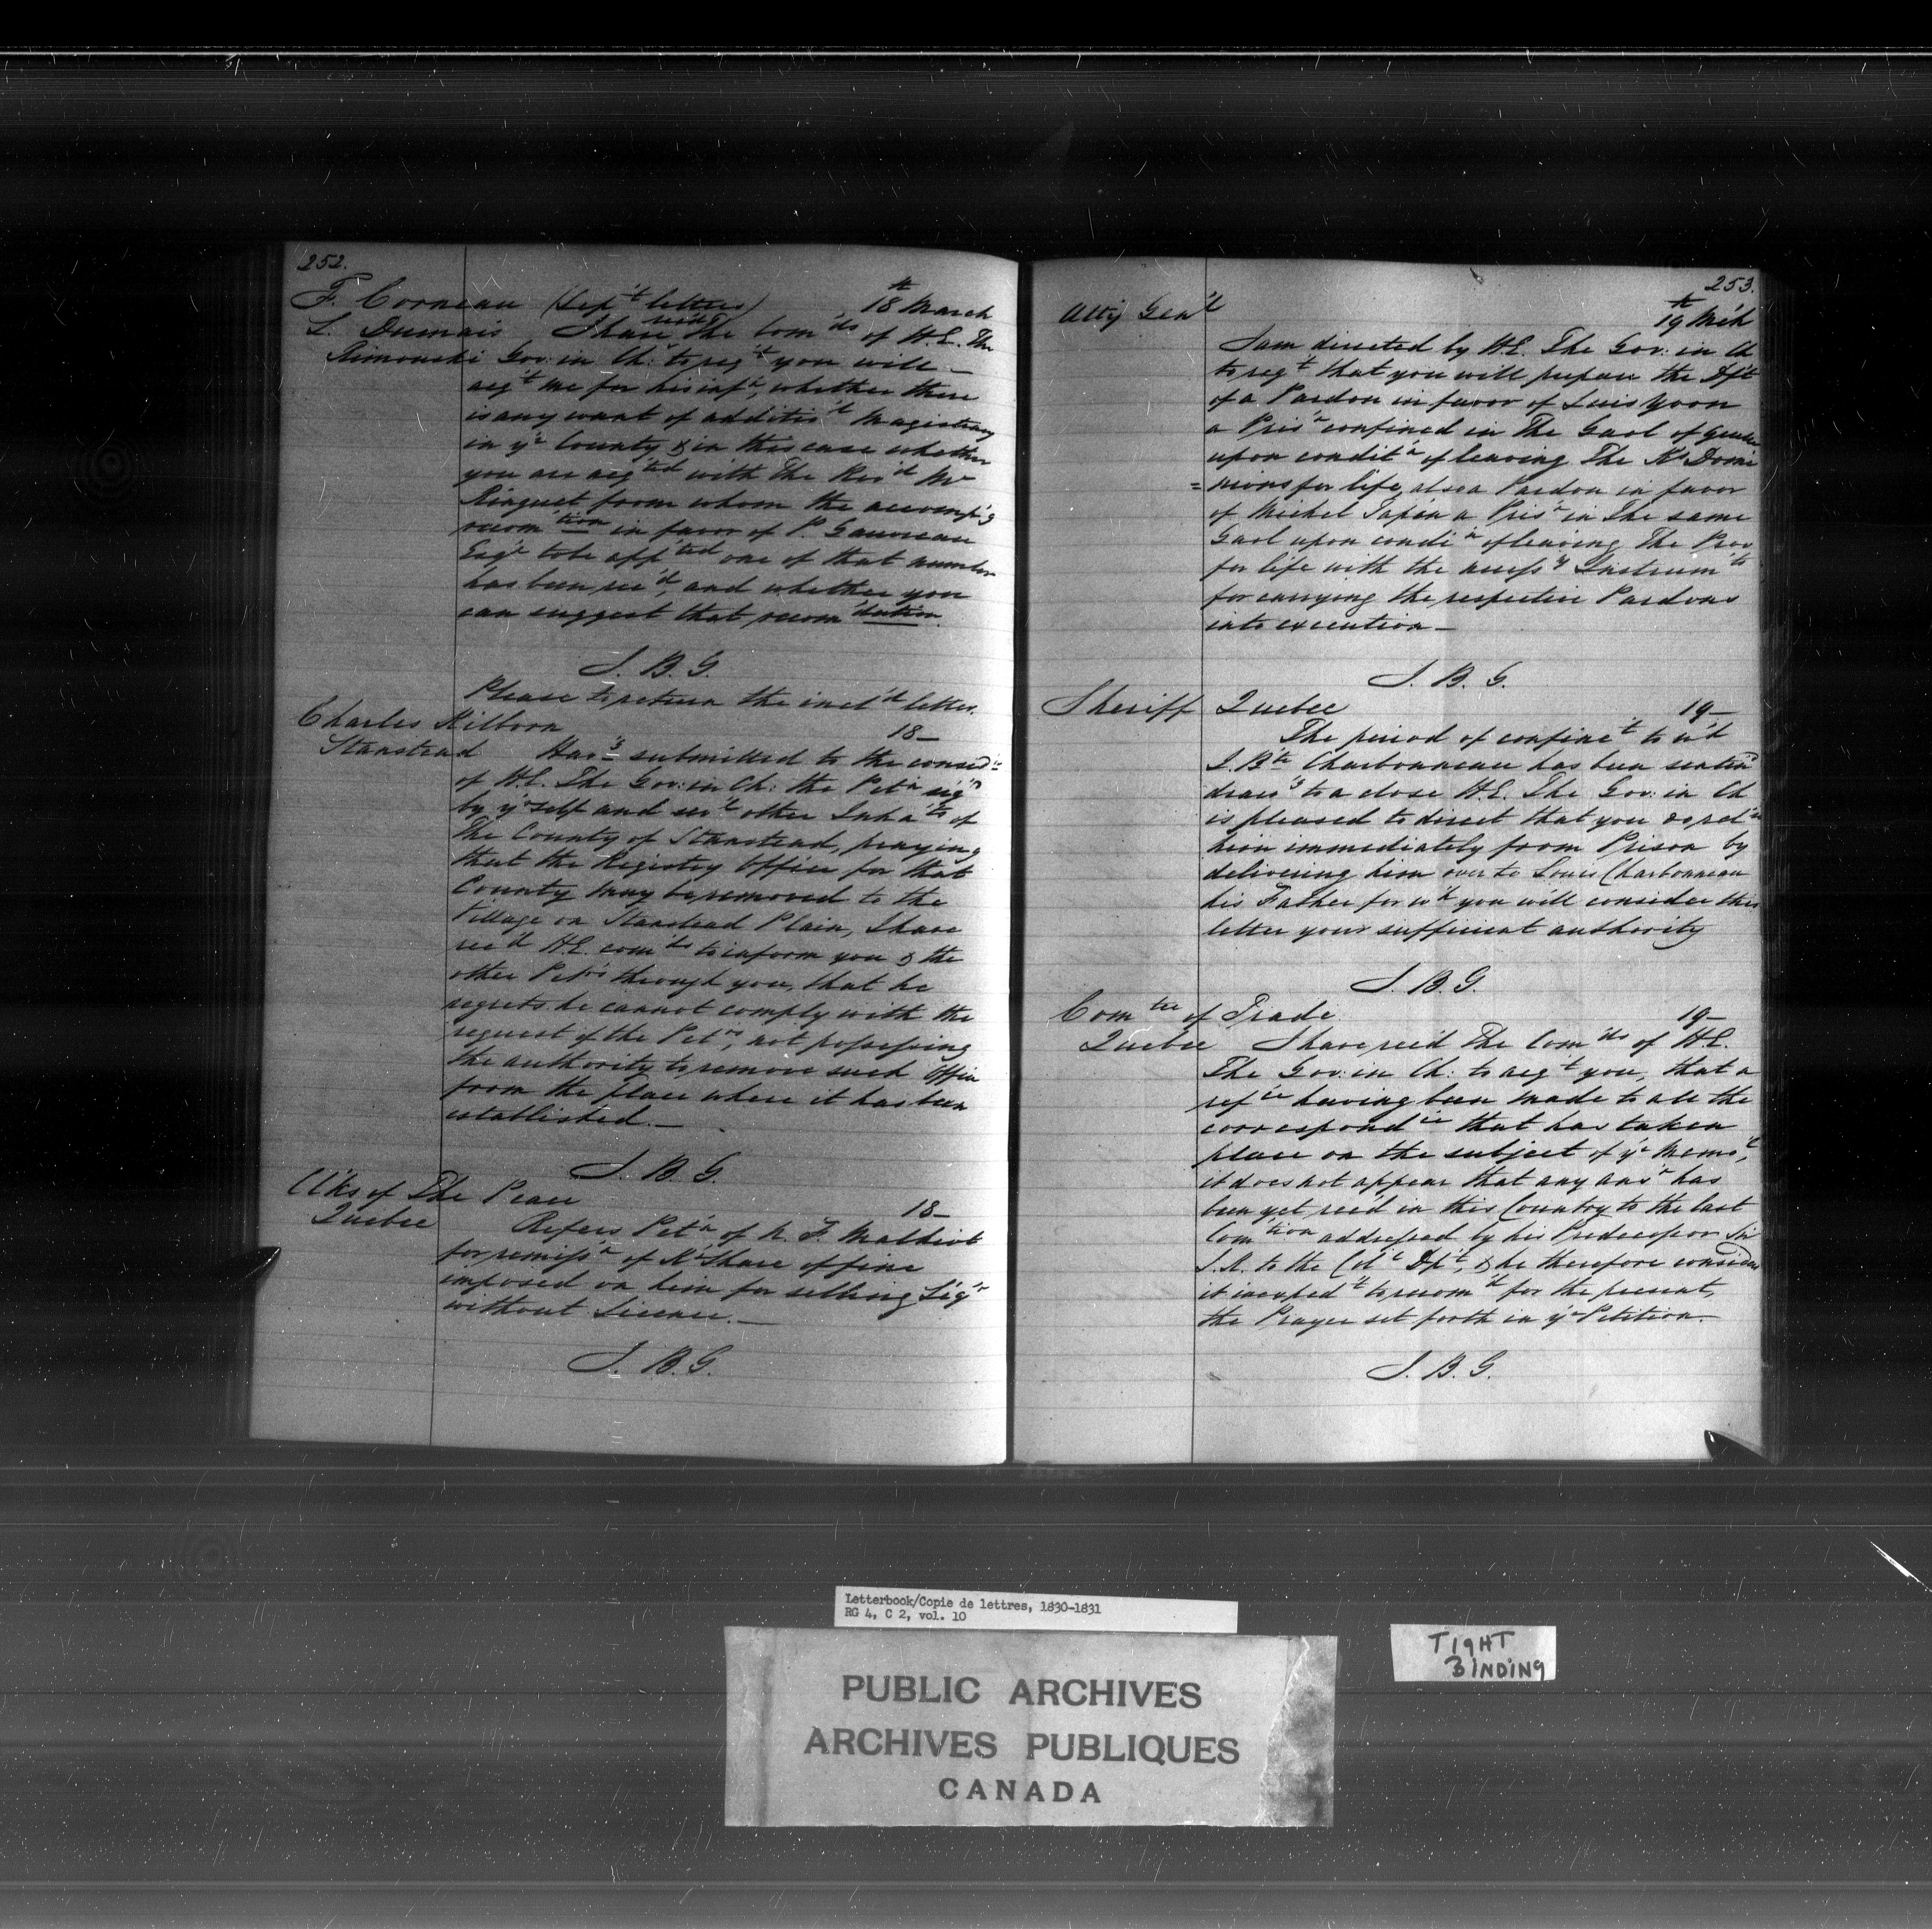 252.
F. Corneau (Sep't letters) 18th March
L. Dumais I have rec'd The Com'ds of H.E. The
Rimouski Gov: in Ch: to req't you will —
acq't me for his inf'n, whether there
is any want of additio'l Magistracy
in y'r County & in this case whether
you are acq'ted with The Rev'd Mr
Ringuet from whom the accomp'g
recom'tion in favor of P. Gauvreau
Esq'r to be app'ted one of that number
has been rec'd, and whether you
can suggest that recom'dation.
J. B. G.
Please to return the incl'd letter.
Charles Kilborn 18—
Stanstead Hav'g submitted to the consid'n
of H.E. The Gov: in Ch: the Pet'n sig'd
by y'rself and sev'l other Inha'ts of
The County of Stanstead, praying
that the Registry Office for that
County may be removed to the
Village on Stanstead Plain, I have
rec'd H.E. com'ds to inform you & the
other Pet'rs through you, that he
regrets he cannot comply with the
request of the Pet'rs, not possessing
the authority to remove such Office
from the place where it has been
established. —
J. B. G.
Clks of The Peace 18—
Quebec Refers Pet'n of N. F. Malhiot
for remiss'n of K's Share of fine
imposed on him for selling Liq'r
without Licence. —
J. B. G.
253.
Atty Gen'l 19th Mch
I am directed by H.E. The Gov: in Ch
to req't that you will prepare the Dft
of a Pardon in favor of Luis Yoon
a Pris'r confined in The Gaol of Quebec
upon condit'n of leaving The K's Domi
= nions for life, also a Pardon in favor
of Michel Tapin a Pris'r in The same
Gaol upon condi'n of leaving The Prov
for life with the necess'y Instrum'ts
for carrying the respective Pardons
into execution —
J. B. G.
Sheriff Quebec 19—
The period of confine't to w'h
J. Bte Charbonneau has been senten'd
draw'g to a close H.E. The Gov: in Ch
is pleased to direct that you do rel'se
him immediately from Prison by
delivering him over to Louis Charbonneau
his Father for w'h you will consider this
letter your sufficient authority
J. B. G.
Com'tee of Trade 19—
Quebec I have rec'd The Com'ds of H.E.
The Gov: in Ch: to acq't you, that a
ref'ce having been made to all the
correspond'ce that has taken
place on the subject of y'r Memo'l,
it does not appear that any ans'r has
been yet rec'd in this Country to the last
Com'tion addressed by his Predecessor Sir
J.K. to the Col'l Dp't, & he therefore considers
it inexped't to recom'd for the present,
the Prayer set forth in y'r Petition.
J. B. G.
Letterbook/Copie de lettres, 1830-1831
RG 4, C 2, vol. 10
PUBLIC ARCHIVES
ARCHIVES PUBLIQUES
CANADA
TIGHT
BINDING